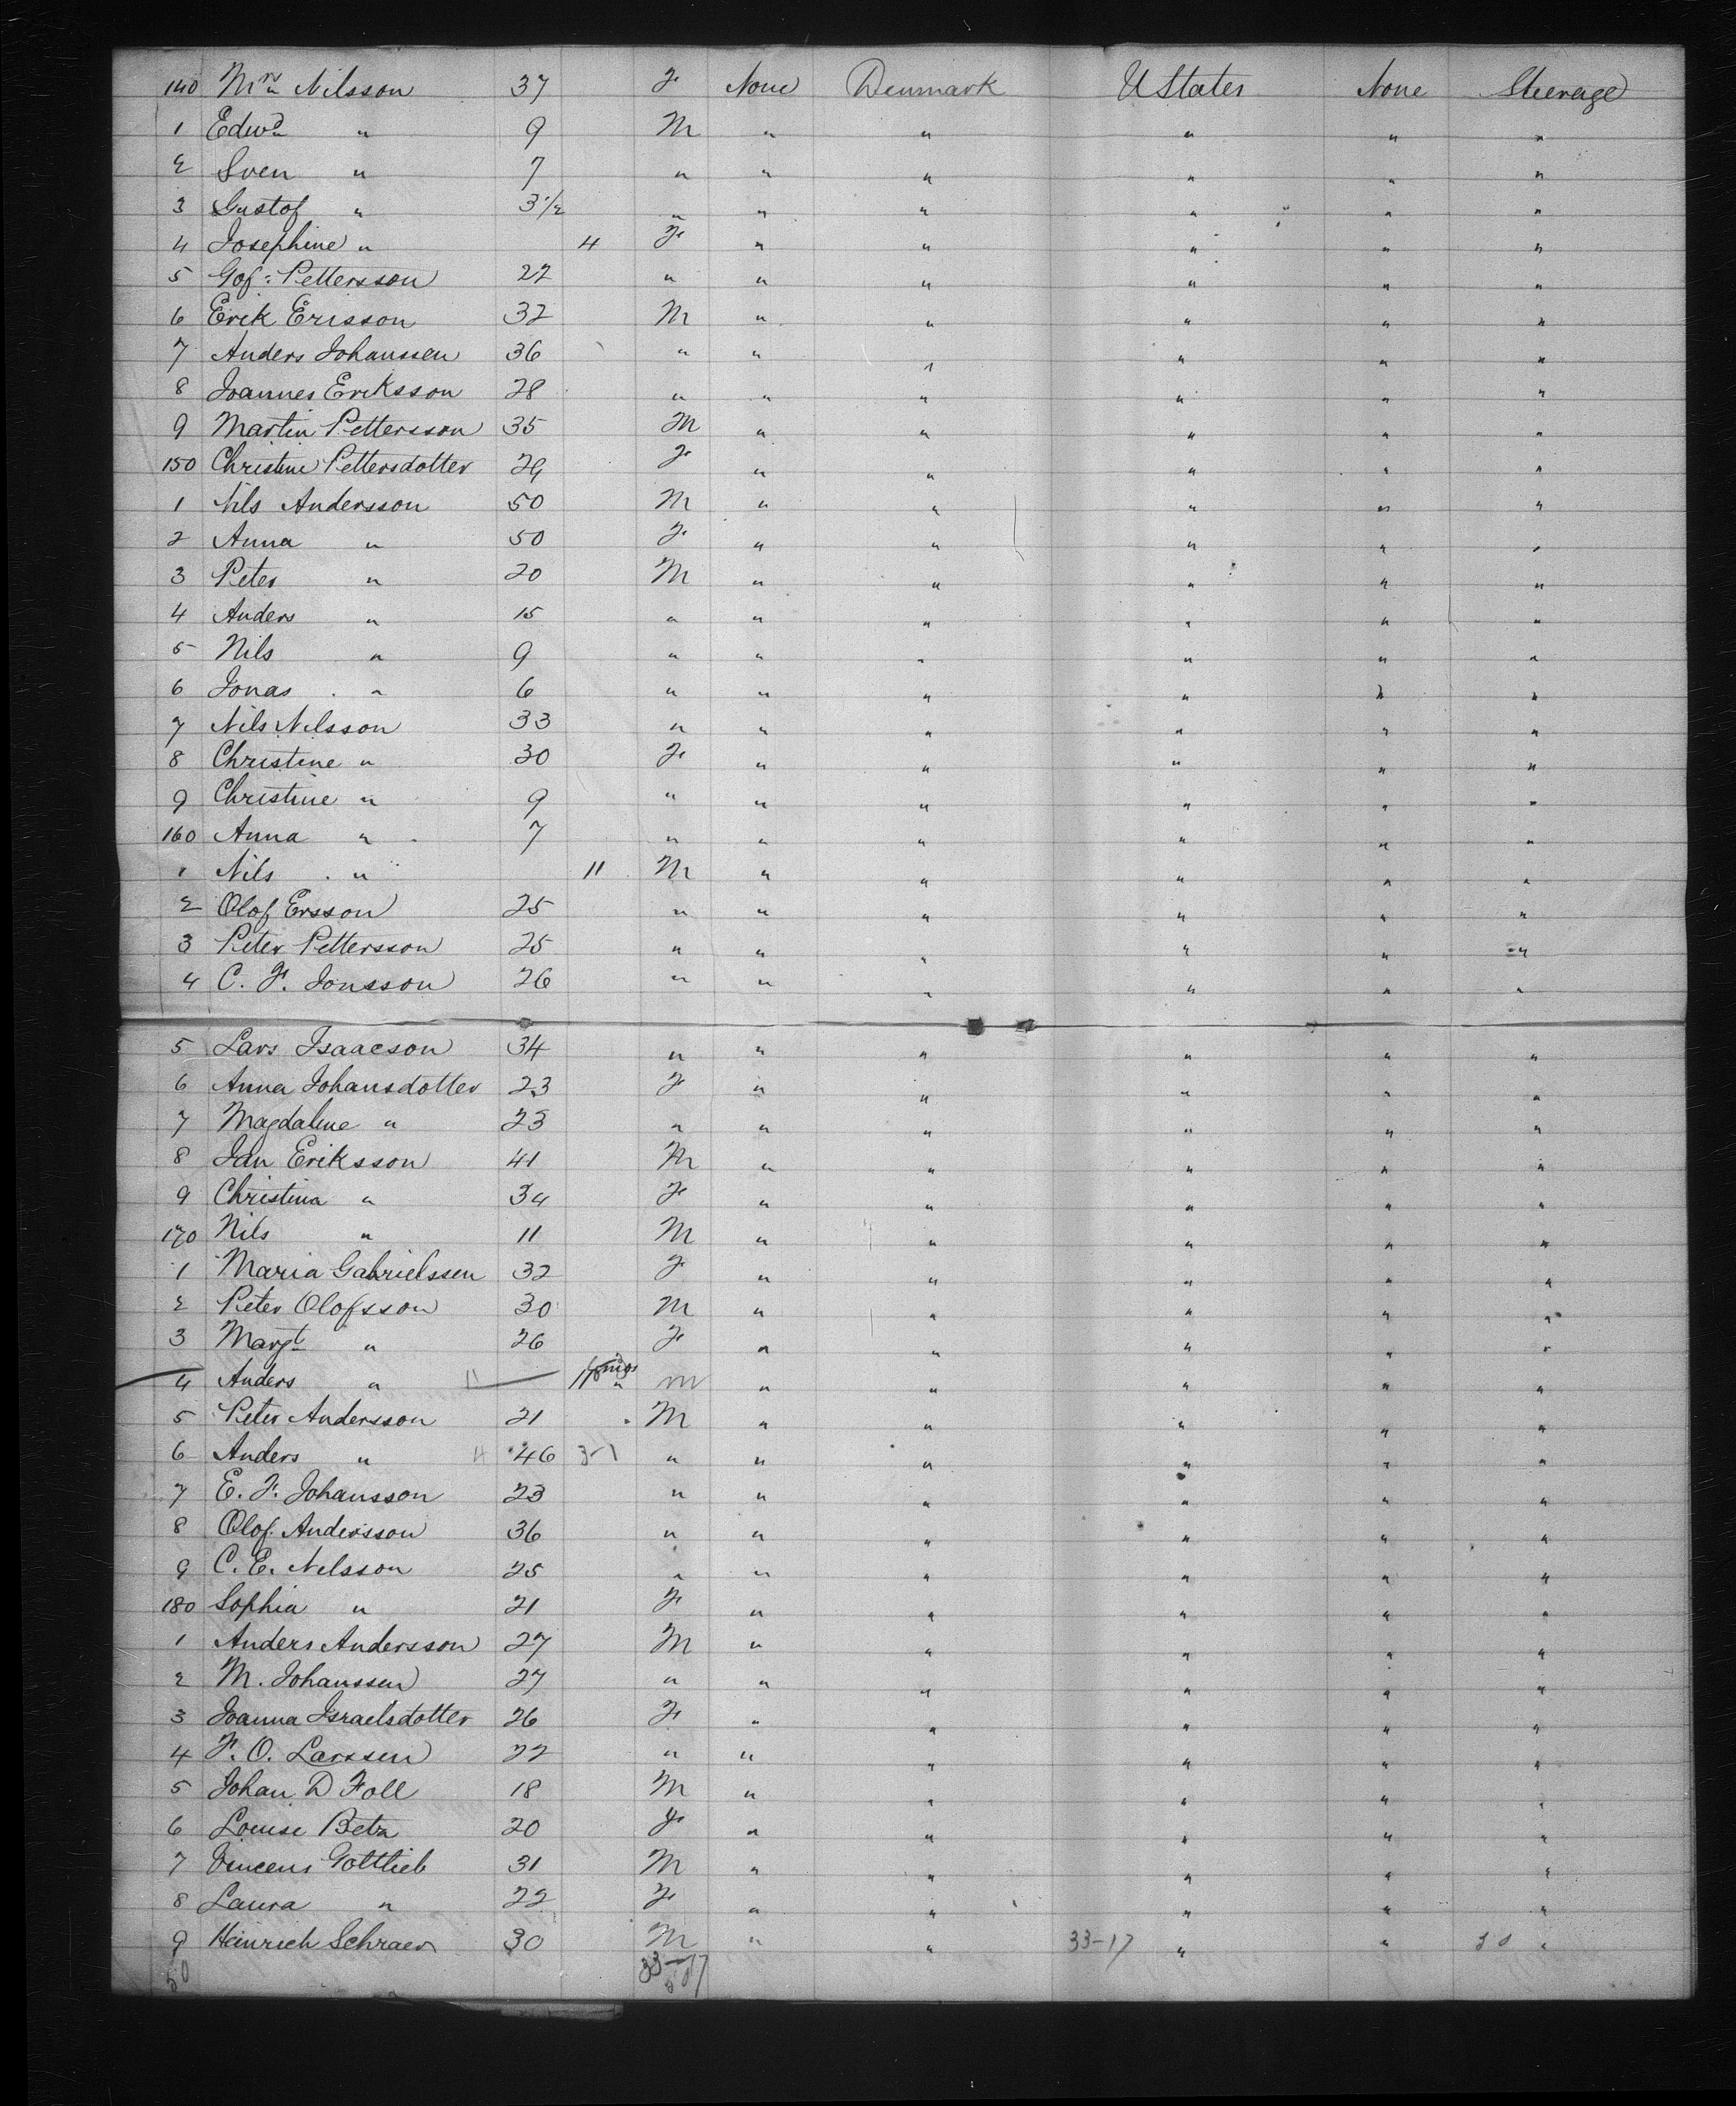 140 Mrs Nilsson 37 F None Denmark U States None Steerage
1 Edwd " 9 M " " " " "
2 Sven " 7 " " " " " "
3 Gustof " 3 1/2 " " " " " "
4 Josephine " 4 F " " " " "
5 Gof: Pettersson 22 " " " " " "
6 Erik Erisson 32 M " " " " "
7 Anders Johanssen 36 " " " " " "
8 Joannes Eriksson 28 " " " " " "
9 Martin Pettersson 35 M " " " " "
150 Christine Pettersdotter 29 F " " " " "
1 Nils Andersson 50 M " " " " "
2 Anna " 50 F " " " " "
3 Peter " 20 M " " " " "
4 Anders " 15 " " " " " "
5 Nils " 9 " " " " " "
6 Jonas " 6 " " " " " "
7 Nils Nilsson 33 " " " " " "
8 Christine " 30 F " " " " "
9 Christine " 9 " " " " " "
160 Anna " 7 " " " " " "
1 Nils " 11 M " " " " "
2 Olof Ersson 25 " " " " " "
3 Peter Pettersson 25 " " " " " "
4 C. F. Jonsson 26 " " " " " "
5 Lars Isaacson 34 " " " " " "
6 Anna Johansdotter 23 F " " " " "
7 Magdalene " 23 " " " " " "
8 Jan Eriksson 41 M " " " " "
9 Christina " 34 F " " " " "
170 Nils " 11 M " " " " "
1 Maria Gabrielssen 32 F " " " " "
2 Peter Olofsson 30 M " " " " "
3 Margt " 26 F " " " " "
4 Anders " 11 mos m " " " " "
5 Peter Andersson 21 M " " " " "
6 Anders " 46 3-1 " " " " " "
7 E. F. Johansson 23 " " " " " "
8 Olof Andersson 36 " " " " " "
9 C. E. Nelsson 25 " " " " " "
180 Sophia " 21 F " " " " "
1 Anders Andersson 27 M " " " " "
2 M. Johanssen 27 " " " " " "
3 Joanna Israelsdotter 26 F " " " " "
4 F. O. Larssen 22 " " " " " "
5 Johan D Foll 18 M " " " " "
6 Louise Betz 20 F " " " " "
7 Vincens Gottlieb 31 M " " " " "
8 Laura " 22 F " " " " "
9 Heinrich Schraer 30 M " " 33-17 " " "
50 33-17